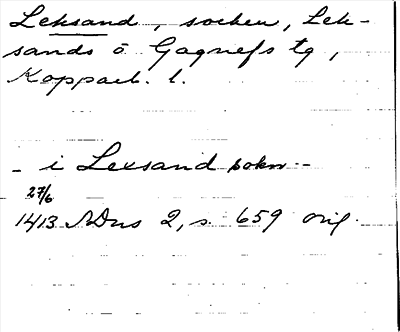 Leksand, socken, Lek-
sands o Gagnefs tg,
Kopparb. l.
- i Lexsand sokn -
27/6
1413 SDns 2, s. 659 orig.